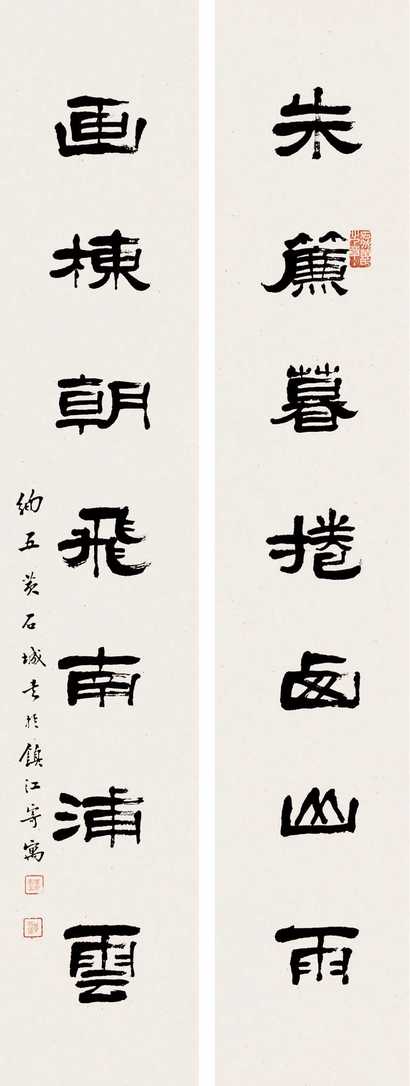 朱簾暮捲西山雨
画棟朝飛南浦雲
五黄石城書於鎮江寄寓